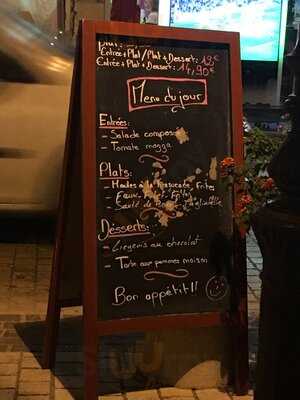 Plat :
Entrée + Plat / Plat + Dessert : 12€
Entrée + Plat + Dessert : 14,90€
Menu du jour
Entrées:
- Salade composée
- Tomate mozza
Plats:
- Moules à la Frites
- Sauté de
Désserts:
- Liégeois au chocolat
- Tarte aux pommes maison
Bon appétit!!